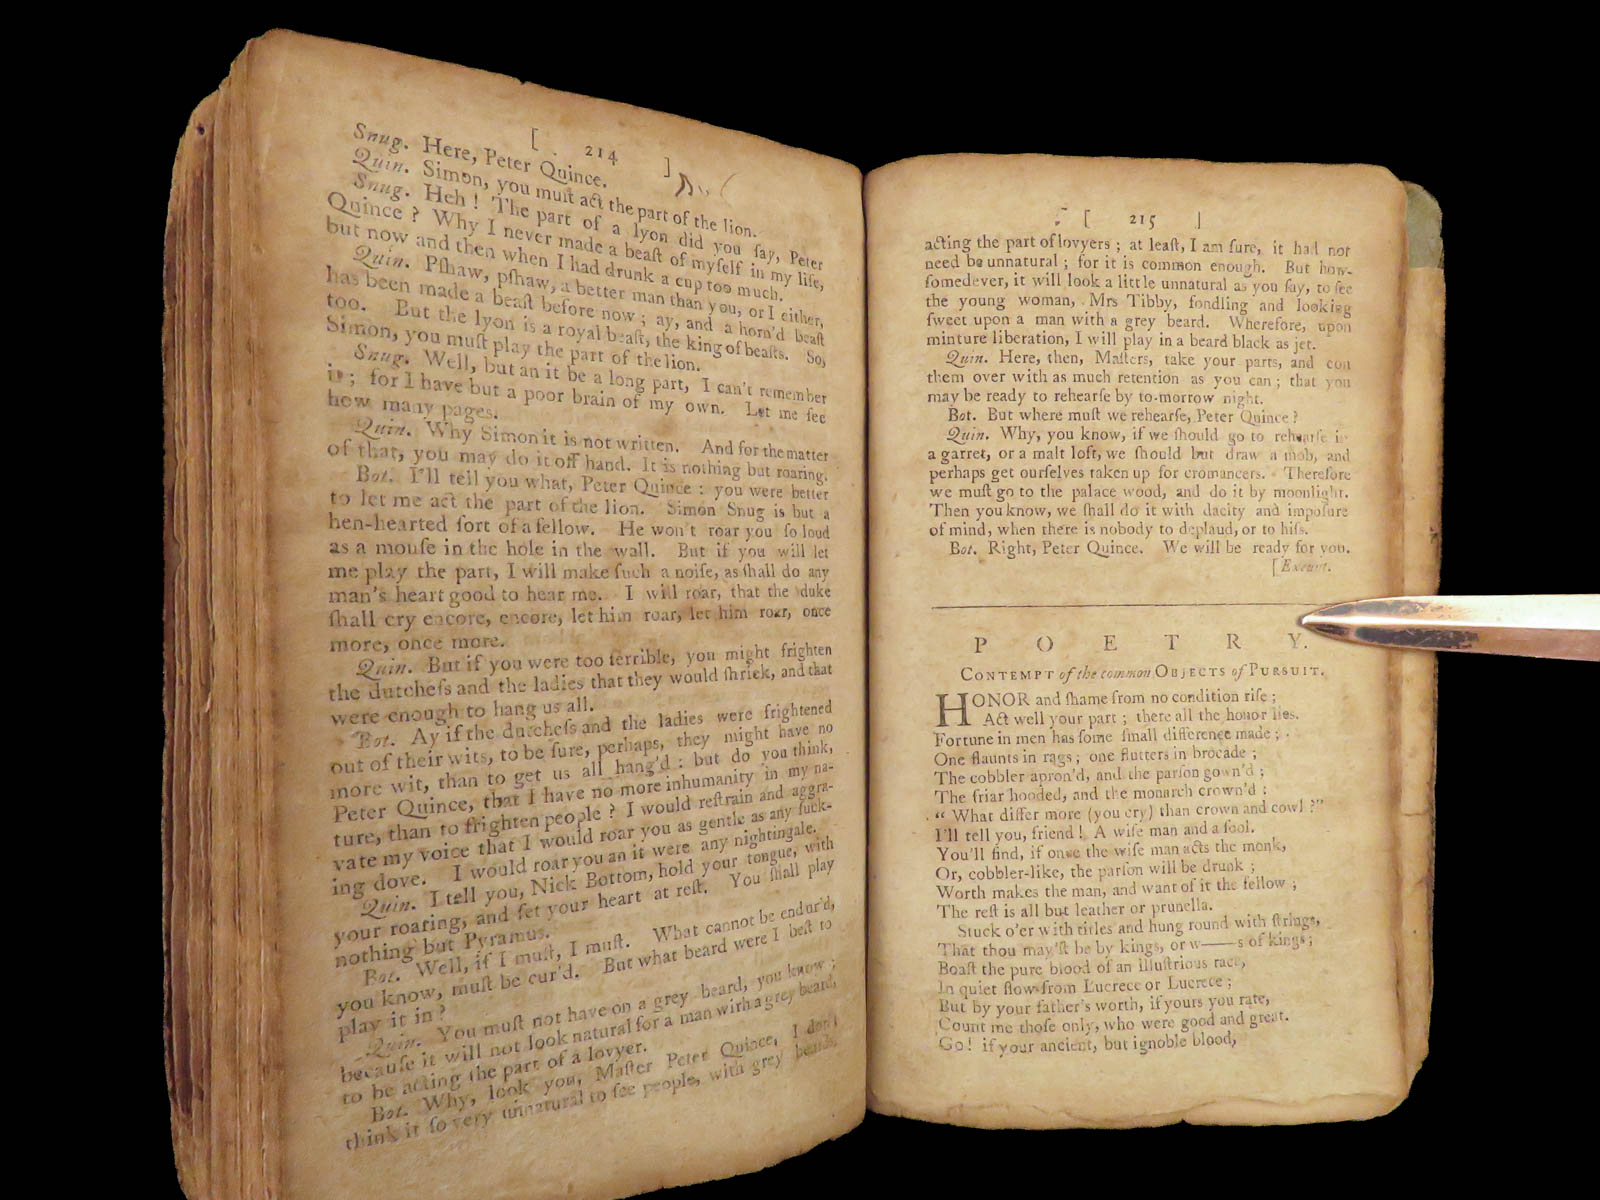 [ 214 ]
Snug. Here, Peter Quince.
Quin. Simon, you muſt act the part of the lion.
Snug. Heh! The part of a lyon did you ſay, Peter
Quince? Why I never made a beaſt of myſelf in my life,
but now and then when I had drunk a cup too much.
Quin. Pſhaw, pſhaw, a better man than you, or I either,
has been made a beaſt before now; ay, and a horn'd beaſt
too. But the lyon is a royal beaſt, the king of beaſts. So,
Simon, you muſt play the part of the lion.
Snug. Well, but an it be a long part, I can't remember
it; for I have but a poor brain of my own. Let me ſee
how many pages.
Quin. Why Simon it is not written. And for the matter
of that, you may do it off hand. It is nothing but roaring.
Bot. I'll tell you what, Peter Quince: you were better
to let me act the part of the lion. Simon Snug is but a
hen-hearted ſort of a fellow. He won't roar you ſo loud
as a mouſe in the hole in the wall. But if you will let
me play the part, I will make ſuch a noiſe, as ſhall do any
man's heart good to hear me. I will roar, that the duke
ſhall cry encore, encore, let him roar, let him roar, once
more, once more.
Quin. But if you were too terrible, you might frighten
the dutcheſs and the ladies that they would ſhriek, and that
were enough to hang us all.
Bot. Ay if the dutcheſs and the ladies were frightened
out of their wits, to be ſure, perhaps, they might have no
more wit, than to get us all hang'd: but do you think,
Peter Quince, that I have no more inhumanity in my na-
ture, than to frighten people? I would reſtrain and aggra-
vate my voice that I would roar you as gentle as any ſuck-
ing dove. I would roar you an it were any nightingale.
Quin. I tell you, Nick Bottom, hold your tongue, with
your roaring, and ſet your heart at reſt. You ſhall play
nothing but Pyramus.
Bot. Well, if I muſt, I muſt. What cannot be endur'd,
you know, muſt be cur'd. But what beard were I beſt to
play it in?
Quin. You muſt not have on a grey beard, you know;
becauſe it will not look natural for a man with a grey beard,
to be acting the part of a lovyer.
Bot. Why, look you, Maſter Peter Quince, I don't
think it ſo very unnatural to ſee people, with grey beards,
[ 215 ]
acting the part of lovyers; at leaſt, I am ſure, it had not
need be unnatural; for it is common enough. But how-
ſomedever, it will look a little unnatural as you ſay, to ſee
the young woman, Mrs Tibby, fondling and looking
ſweet upon a man with a grey beard. Wherefore, upon
minture liberation, I will play in a beard black as jet.
Quin. Here, then, Maſters, take your parts, and con
them over with as much retention as you can; that you
may be ready to rehearſe by to-morrow night.
Bot. But where muſt we rehearſe, Peter Quince?
Quin. Why, you know, if we ſhould go to rehearſe in
a garret, or a malt loft, we ſhould but draw a mob, and
perhaps get ourſelves taken up for cromancers. Therefore
we muſt go to the palace wood, and do it by moonlight.
Then you know, we ſhall do it with dacity and impoſure
of mind, when there is nobody to deplaud, or to hiſs.
Bot. Right, Peter Quince. We will be ready for you.
[Exeunt.
POETRY.
CONTEMPT of the common OBJECTS of PURSUIT.
HONOR and ſhame from no condition riſe;
Act well your part; there all the honor lies.
Fortune in men has ſome ſmall difference made;
One flaunts in rags; one flutters in brocade;
The cobbler apron'd, and the parſon gown'd;
The friar hooded, and the monarch crown'd:
"What differ more (you cry) than crown and cowl?"
I'll tell you, friend! A wiſe man and a fool.
You'll find, if once the wiſe man acts the monk,
Or, cobbler-like, the parſon will be drunk;
Worth makes the man, and want of it the fellow;
The reſt is all but leather or prunella.
Stuck o'er with titles and hung round with ſtrings,
That thou may'ſt be by kings, or w——s of kings;
Boaſt the pure blood of an illuſtrious race,
In quiet flow from Lucrece or Lucrece;
But by your father's worth, if yours you rate,
Count me thoſe only, who were good and great.
Go! if your ancient, but ignoble blood,